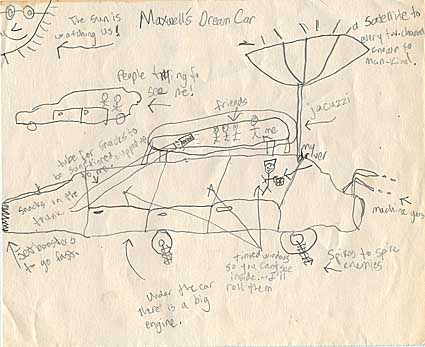 Maxwell's Dream Car
The sun is
watching us!
a satellite to
every t.v. channel
known to
man-kind!
People trying to
see me!
friends
me
jacuzzi
my
driver
tube for snacks to
be
to me.
snacks in the
trunk
machine guns
Jet boosters
to go fast.
Under the car
there is a big
engine!
tinted windows
so you can't see
inside... I'll
roll them
Spikes to spike
enemies